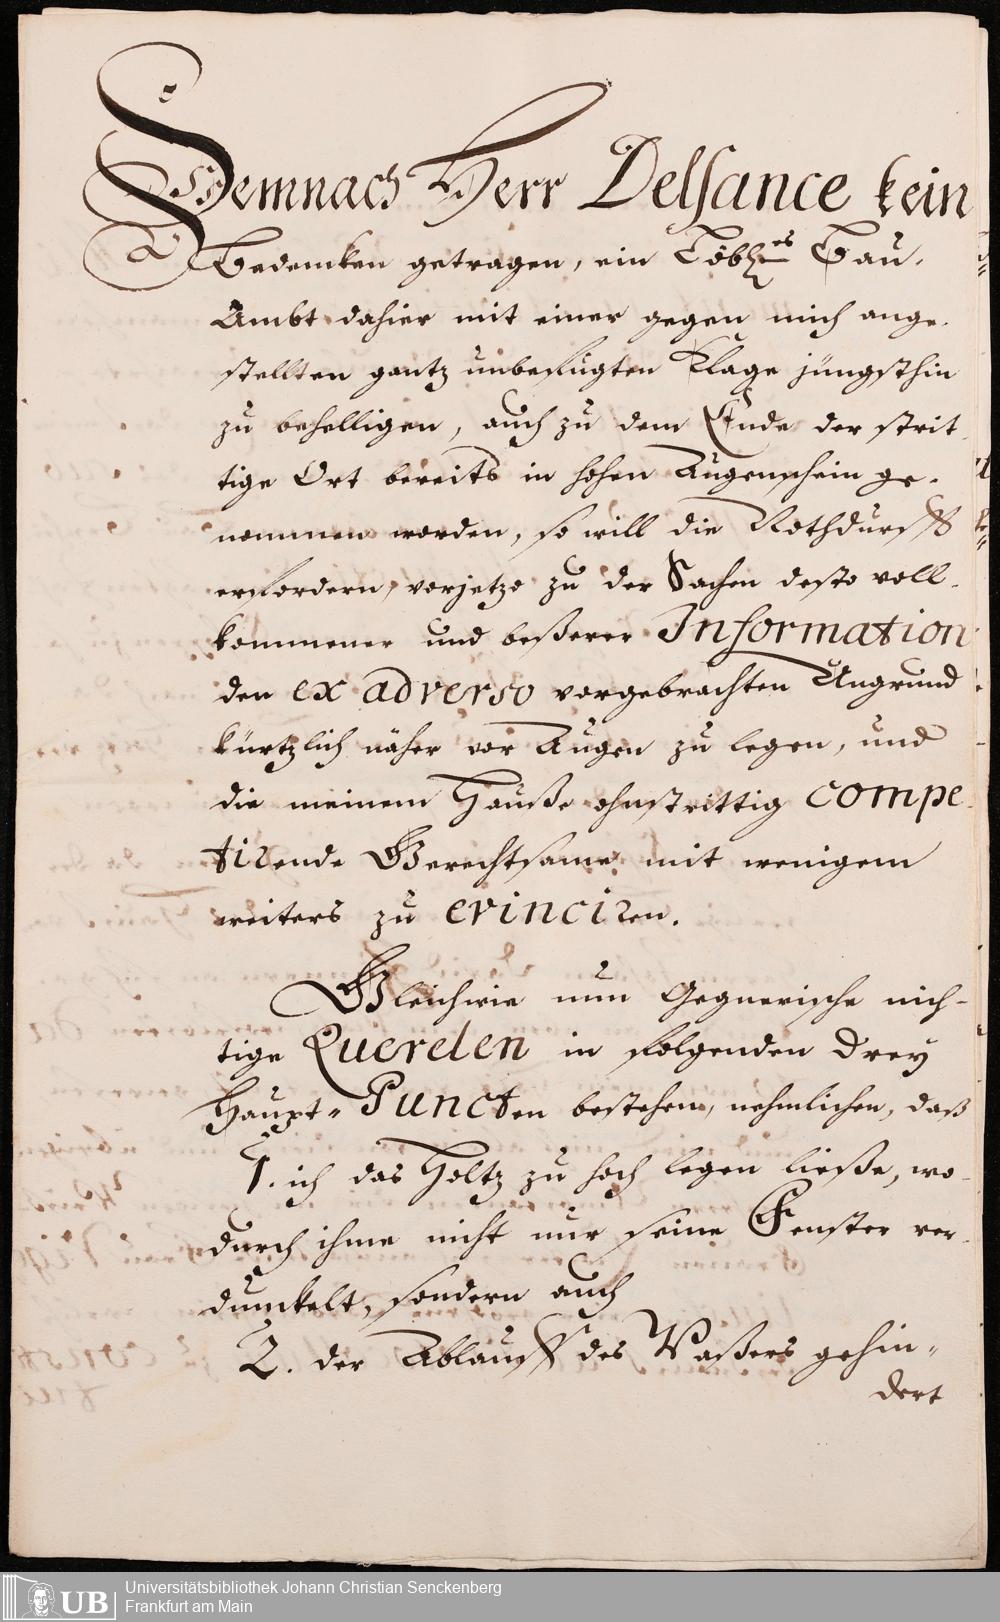 Demnach Herr Delsance kein
Bedencken getragen, ein Löbl.es Bau-
Ambt dahier mit einer gegen mich ange-
stellten gantz unbefugten Klage jüngsthin
zu behelligen, auch zu dem Ende der strit-
tige Ort bereits in hohen Augenschein ge-
nommen worden, so will die Nothdurfft
erfordern, vorjetzo zu der Sachen desto voll-
kommener und beßerer Information
den ex adverso vorgebrachten Ungrund
kürtzlich näher vor Augen zu legen, und
die meinem Hauße ohnstrittig compe-
tirende Gerechtsame mit wenigem
weiters zu evinciren.
Gleichwie nun Gegnerische nich-
tige Querelen in folgenden drey
Haupt-Puncten bestehen, nehmlichen, daß
1. ich das Holtz zu hoch legen ließe, wo-
durch ihme nicht nur seine Fenster ver-
dunckelt, sondern auch
2. der Ablauff des Waßers gehin-
dert
UB
Universitätsbibliothek Johann Christian Senckenberg
Frankfurt am Main